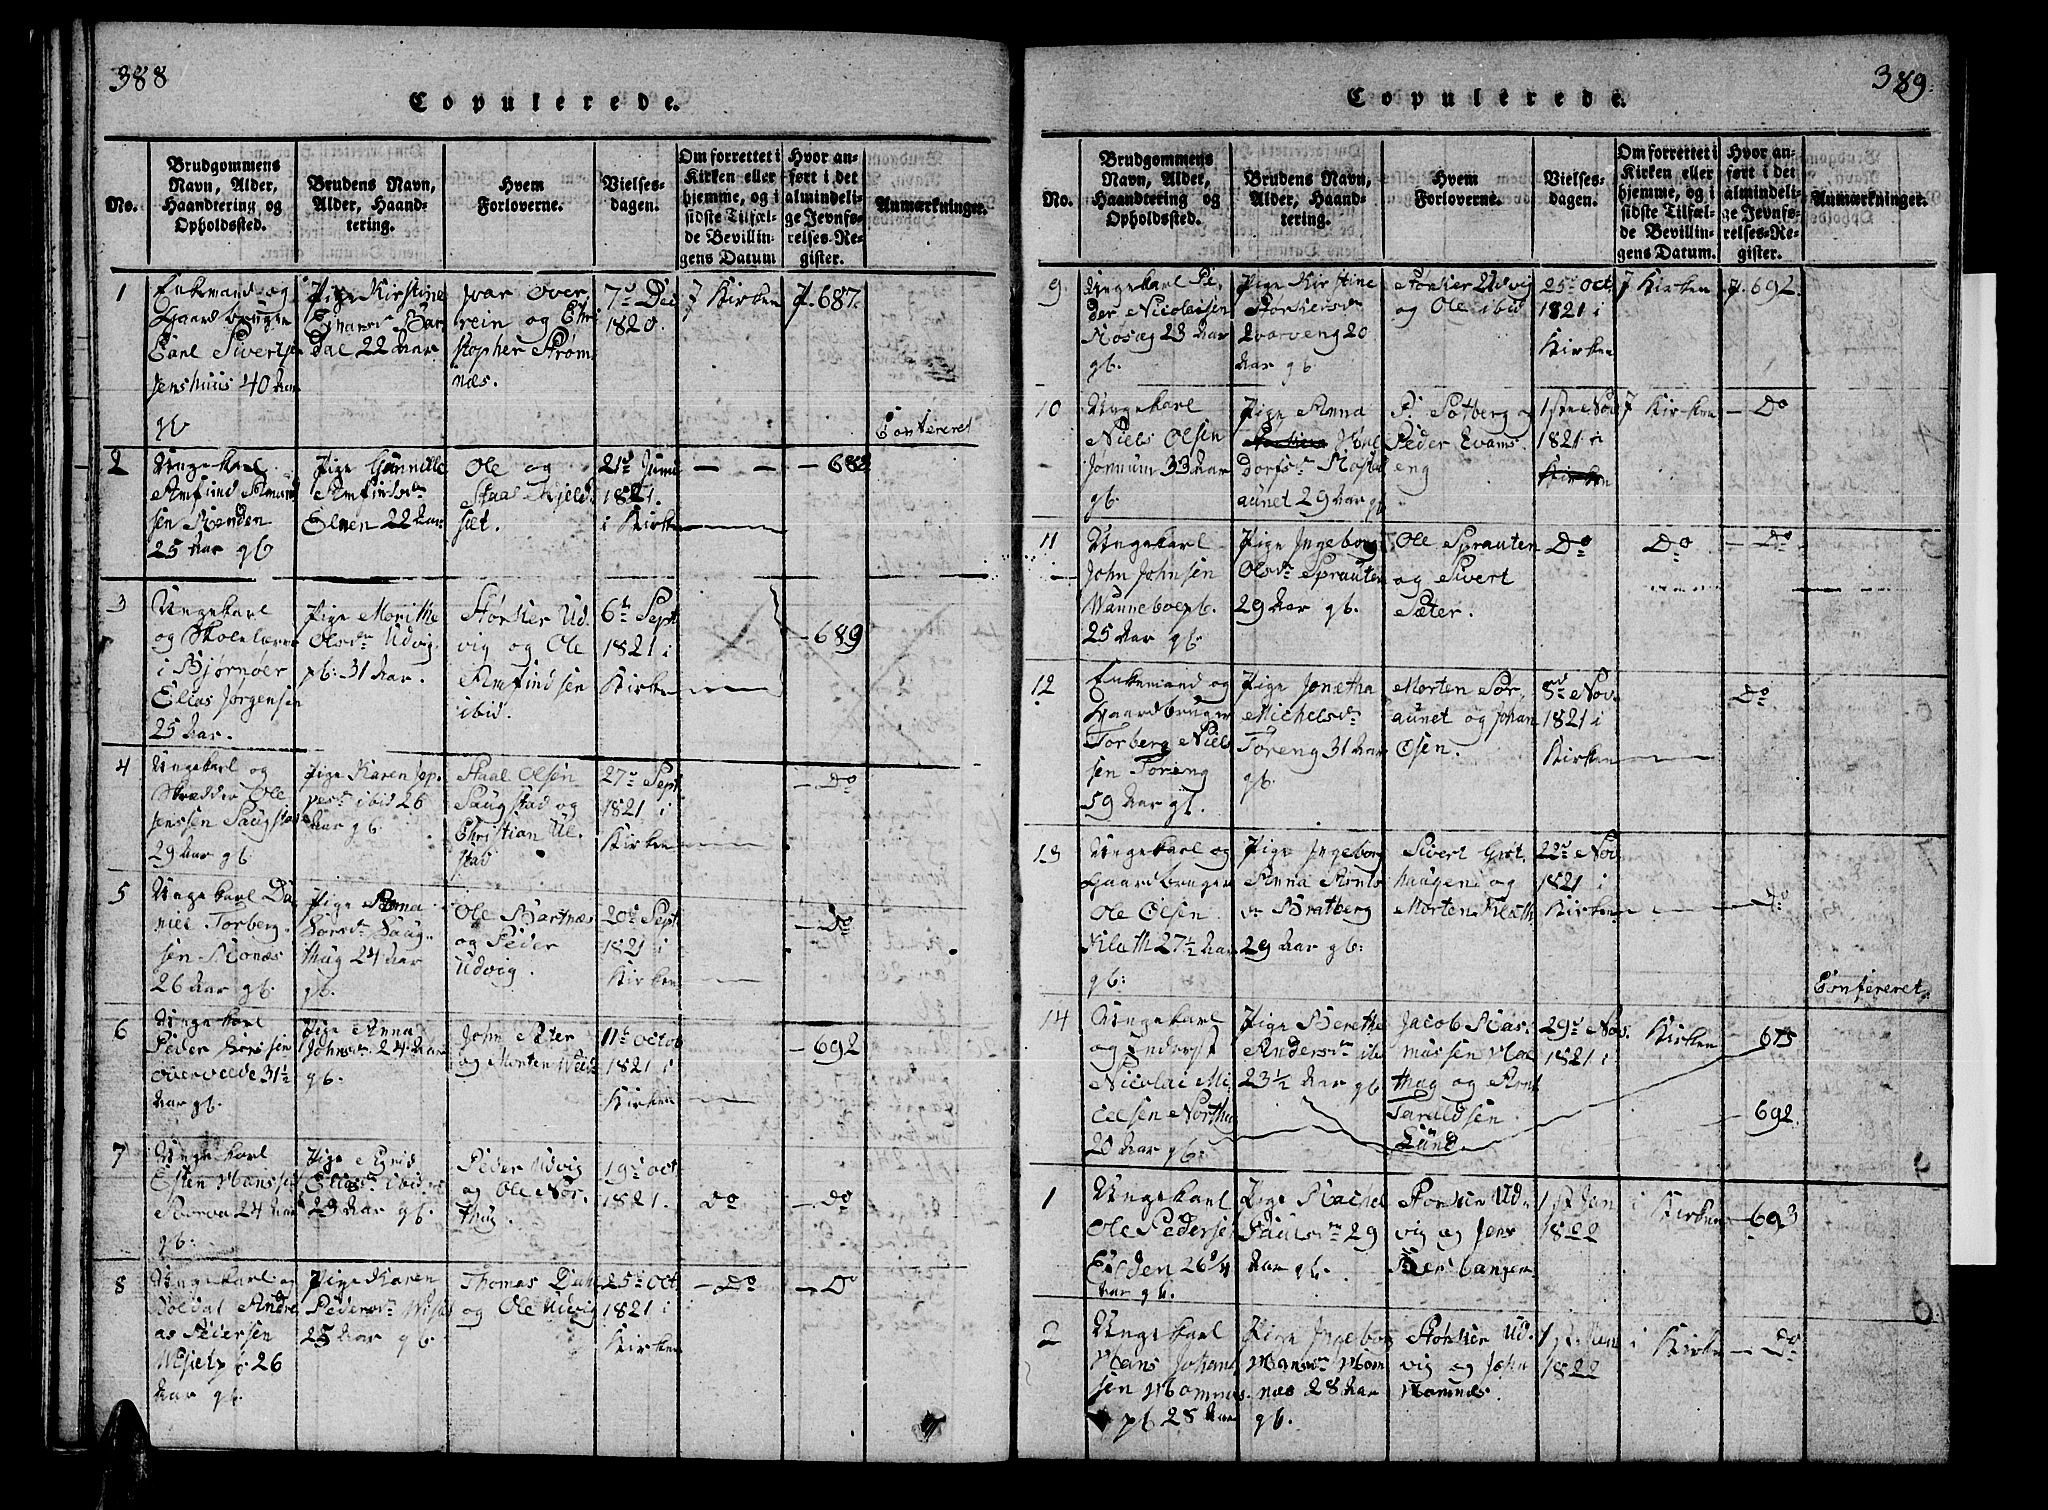 388
Copulerede.
No.
Brudgommens Navn, Alder, Haandtering og Opholdssted.
Brudens Navn, Alder, Haandtering.
Hvem Forloverne.
Vielsesdagen.
Om forrettet i Kirken eller hjemme, og i sidste Tilfælde Bevillingens Datum
Hvor anført i det almindelige Jevnførelses-Register.
Anmærkninger.
1
Enkemand og
Gaardbruger
Carl Sivertsen
Jenshuus 40 Aar
Pige Kirstine
Bar
dal 22 Aar
Ivar Over
rein og Chri
stopher Strøm
næs.
7d Dec
1820.
J Kirken
p. 687.
Confereret
2
Ungekarl
Amfind Amund
sen Renden
25 Aar gb
Pige Gunnille
Amfindsdr
Elven 22 Aar
Ole og
Staal Kjeld
sæt.
21d Juni
1821.
i Kirken
688
3
Ungekarl
og Skolelærer
i Bjørnøer
Elias Jørgensen
25 Aar.
Pige Morithe
Olsdr Udvig
pb: 31 Aar.
Størker Ud
vig og Ole
Amfindsen
ibid.
6t Sept
1821 i
Kirken
689
4
Ungekarl og
Skrædder Ole
Jenssen Saugstad
29 Aar gb
Pige Karen Jep
pesdr ibid 26
Aar gb.
Staal Olsen
Saugstad og
Christian Ul
stad
27d Sept.
1821 i
Kirken
Do
5
Ungekarl Da
niel Torberg
sen Monæs
26 Aar gb.
Pige Anna
Larsdr Haug
thug 24 Aar
gb.
Ole Bartnæs
og Peder
Udvig.
20d Sept
1821 i
Kirken
Do
6
Ungekarl
Peder Larssen
overvelde 31½
Aar gb.
Pige Anna
Johnsdr 24 Aar
gb.
John Sæter
og Morten Velde
11t octob
1821 i
Kirken
692
7
Ungekarl
Esten Hanssen
24 Aar
gb.
Pige Agnis
Eliasdr ibid
23 Aar gb.
Peder Udvig
og Ole Nør
thug.
19d oct
1821.
Do
Do
8
Ungekarl og
Soldat Andre
as Pedersen
26
Aar gb.
Pige Karen
Pedersdr
25 Aar gb
Thomas Dahl
og Ole Udvig
25d oct
1821 i
Kirken
Do
Do
389.
Copulerede.
No.
Brudgommens Navn, Alder, Haandtering og Opholdssted.
Brudens Navn, Alder, Haandtering.
Hvem Forloverne.
Vielsesdagen.
Om forrettet i Kirken eller hjemme, og i sidste Tilfælde Bevillingens Datum.
Hvor anført i det almindelige Jevnførelses-Register.
Anmærkninger.
9
Ungekarl Pe
der Nicolaisen
Mosæg 23 Aar
gb.
Pige Kirstine
Størkersdr
Kvarveng 20
Aar gb
Størker Udvig
og Ole ibid
25d oct
1821 i
Kirken
J Kirken
p. 692.
10
Ungekarl
Niels Olsen
Jønnum 33 Aar
gb.
Pige Anna
dorfsdr
aunet 29 Aar gb
P. Sotberg og
Peder Evans
eng
1ste Nov
1821 i
Kirken
J Kirken
Do
11
Ungekarl
John Johnsen
25 Aar gb
Pige Ingeborg
Olsdr Sprauten
29 Aar gb.
Ole Sprauten
og Sivert
Sæter.
Do
Do
Do
12
Enkemand og
Gaardbruger
Torberg Niel
sen Foreng
59 Aar gb.
Pige Jonetha
Michelsdr
Foreng 31 Aar
gb.
Morten Sør
aunet og Johan
Olsen.
8d Nov.
1821 i
Kirken
Do
13
Ungekarl og
Gaardbruger
Ole Olsen
27½ Aar
gb:
Pige Ingeborg
Anna Arnts
dr Bratberg
29 Aar gb:
Sivert Grøt
haugen og
Morten
22d Nov
1821 i
Kirken
Do
Confereret
14
Ungekarl
og Inderst
Nicolai Mi
celsen Northug
20 Aar gb:
Pige Berethe
Andersdr ib
23½ Aar gb
Jacob Ras
mussen Nor
thug og Arnt
Taraldsen
Lund
29d Nov.
1821 i
Kirken
675
692
1
Ungekarl
Ole Pedersen
Elden 26¾
Aar gb.
Pige Rachel
Paulsdr 29
Aar gb.
Størker Ud
vig og Jens
1st Jan
1822
i Kirken
693
2
Ungekarl
Hans Johan
sen Homnæs
pb 28 Aar
Pige Ingeborg
Hansdr Hom
næs 28 Aar
gb.
Størker Ud
vig og John
Homnæs.
1st Jan
1822
i Kirken
Do